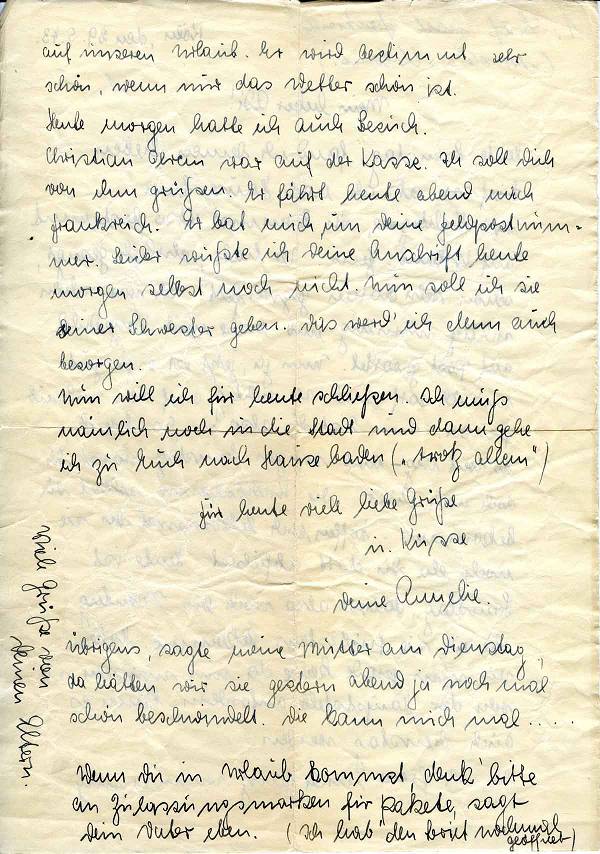 auf unseren Urlaub. Er wird bestimmt sehr
schön, wenn nur das Wetter schön ist.
Heute morgen hatte ich auch Besuch.
Christian war auf der Kasse. Ich soll Dich
von ihm grüßen. Er fährt heute abend nach
Frankreich. Er bat mich um Deine Feldpostnum-
mer. Leider wußte ich Deine Anschrift heute
morgen selbst noch nicht. Nun soll ich sie
seiner Schwester geben. Das werd' ich denn auch
besorgen.
Nun will ich für heute schließen. Ich muß
nämlich noch in die Stadt und dann gehe
ich zu Euch nach Hause baden („trotz allem“)
Für heute viele liebe Grüße
u. Küsse
Deine Annelie.
Übrigens, sagte meine Mutter am Dienstag,
da hätten wir sie gestern abend ja noch mal
schön beschwindelt. Die kann mich mal.....
Wenn Du in Urlaub kommst, denk' bitte
an Zulassungsmarken für Pakete, sagt
Dein Vater eben. (Ich hab' den Brief nochmal
geöffnet)
Viele Grüße von
Deinen Eltern.